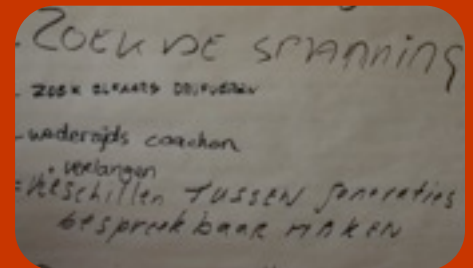 - ZOEK DE SPANNING
- ZOEK ELKAARS DRIJFVEREN
- wederzijds coachen
• verlangen
- VERSCHILLEN TUSSEN generaties
bespreekbaar MAKEN